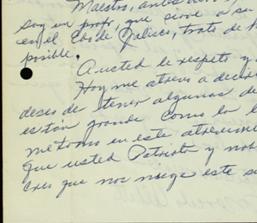 Maestro, antes
soy un profr, que sirve a su
en el Edo de Jalisco, trato de
posible.
A usted le respeto y
Hoy me atrevo a decir
deseo de tener algunos de
es tan grande como la
metome en este atrevimi
que usted Patriota y nob
creo que nos niege este s